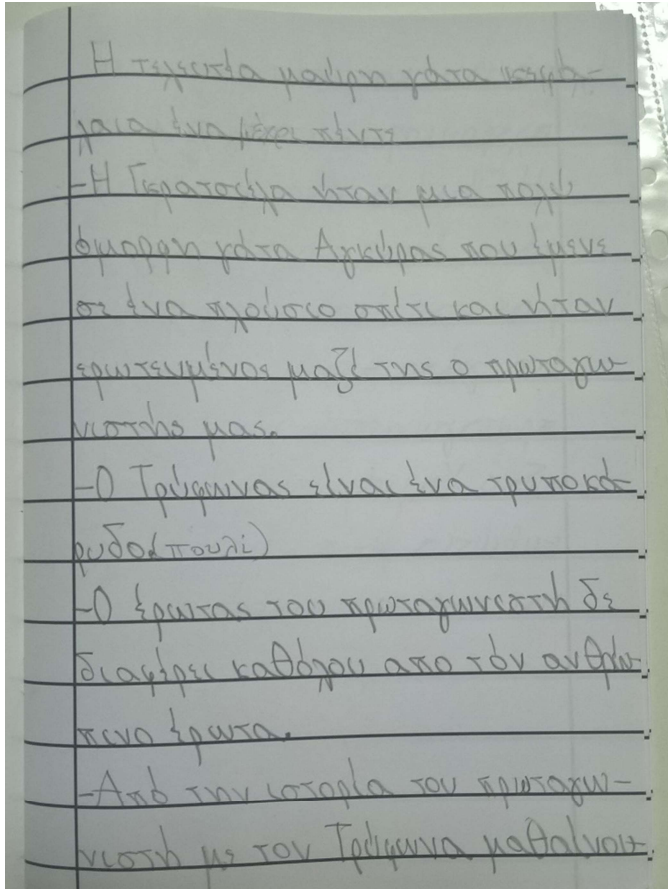 Η τελευταία μαύρη γάτα κεφά-
λαια ένα μέχρι πέντε
-Η Γκρατσιέλα ήταν μια πολύ
όμορφη γάτα Αγκύρας που έμενε
σε ένα πλούσιο σπίτι και ήταν
ερωτευμένος μαζί της ο πρωταγω-
νιστής μας.
-Ο Τρύφωνας είναι ένα τρυποκά-
ρυδο(πουλί)
-Ο έρωτας του πρωταγωνιστή δε
διαφέρει καθόλου απο τόν ανθρώ-
πινο έρωτα.
-Από την ιστορία του πρωταγω-
νιστή με τον Τρύφωνα μαθαίνου-